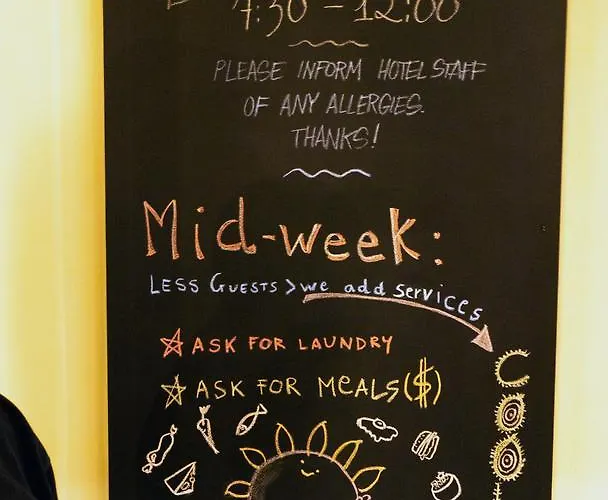 7:30 - 12:00
PLEASE INFORM HOTEL STAFF
OF ANY ALLERGIES.
THANKS!
Mid-week:
LESS GUESTS > we add services
☆ ASK FOR LAUNDRY
☆ ASK FOR MEALS($)
COO